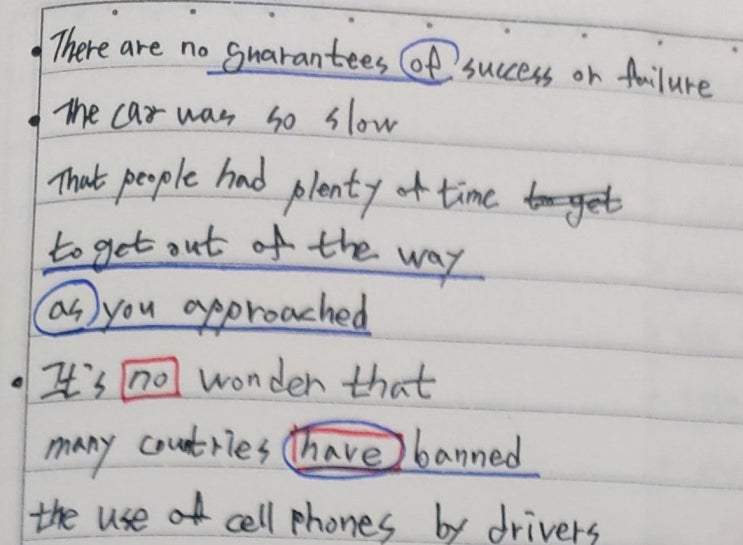 • There are no guarantees of success or failure
• The car was so slow
That people had plenty of time to get
to get out of the way
as you approached
• It's no wonder that
many countries have banned
the use of cell phones by drivers